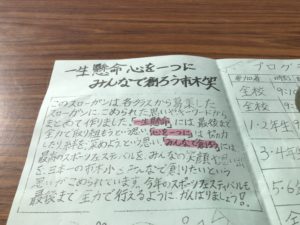 一生懸命 心を一つに
みんなで創ろう市木笑
このスローガンは、各クラスから募集した
スローガンに、こめられた思いやキーワードに
まとめて作りました。「一生懸命」には、最後まで
全力で取り組もうという思い、「心を一つに」は、協力
したり、絆を深めようという思い、「みんなで創ろう」には
最高のスポーツフェスティバルを、みんなの笑顔
を三本一の市木小をみんなで創りたいという
思いがこめられています。今年のスポーツフェスティバルも
最後まで全力で行えるように、がんばりましょう!
プログラ
参加者 時
全校 9:
全校 9:10
1・2年生
3・4年
5・